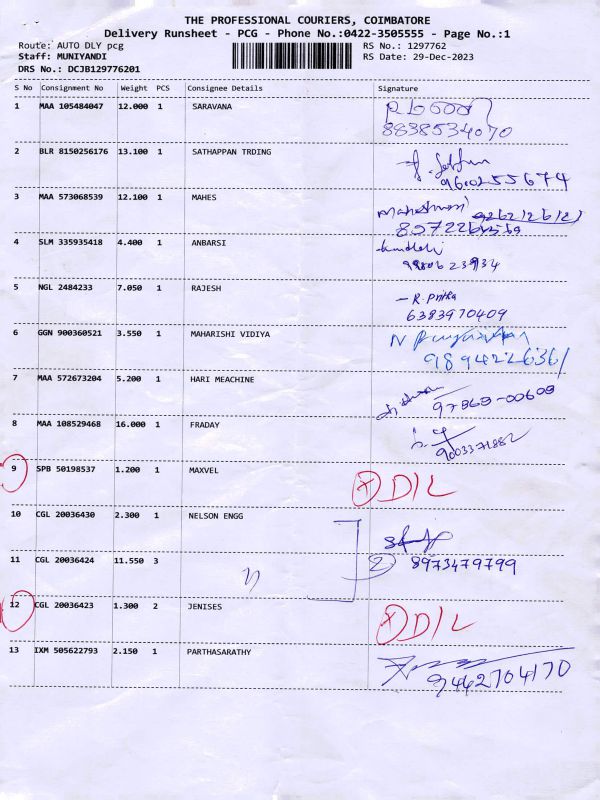 THE PROFESSIONAL COURIERS, COIMBATORE
Delivery Runsheet - PCG - Phone No.:0422-3505555 - Page No.:1
Route: AUTO DLY pcg RS No.: 1297762
Staff: MUNIYANDI RS Date: 29-Dec-2023
DRS No.: DCJB129776201
S No Consignment No Weight PCS Consignee Details Signature
1 MAA 105484047 12.000 1 SARAVANA
8838534070
2 BLR 8150256176 13.100 1 SATHAPPAN TRDING
9600255674
3 MAA 573068539 12.100 1 MAHES
4 SLM 335935418 4.400 1 ANBARSI
5 NGL 2484233 7.050 1 RAJESH - R. Pritha
6383970409
6 GGN 900360521 3.550 1 MAHARISHI VIDIYA
9894226361
7 MAA 572673204 5.200 1 HARI MEACHINE
97868-00608
8 MAA 108529468 16.000 1 FRADAY
9003371882
9 SPB 50198537 1.200 1 MAXVEL X D/L
10 CGL 20036430 2.300 1 NELSON ENGG
11 CGL 20036424 11.550 3 " 2 8973479799
12 CGL 20036423 1.300 2 JENISES X D/L
13 IXM 505622793 2.150 1 PARTHASARATHY
9442704170